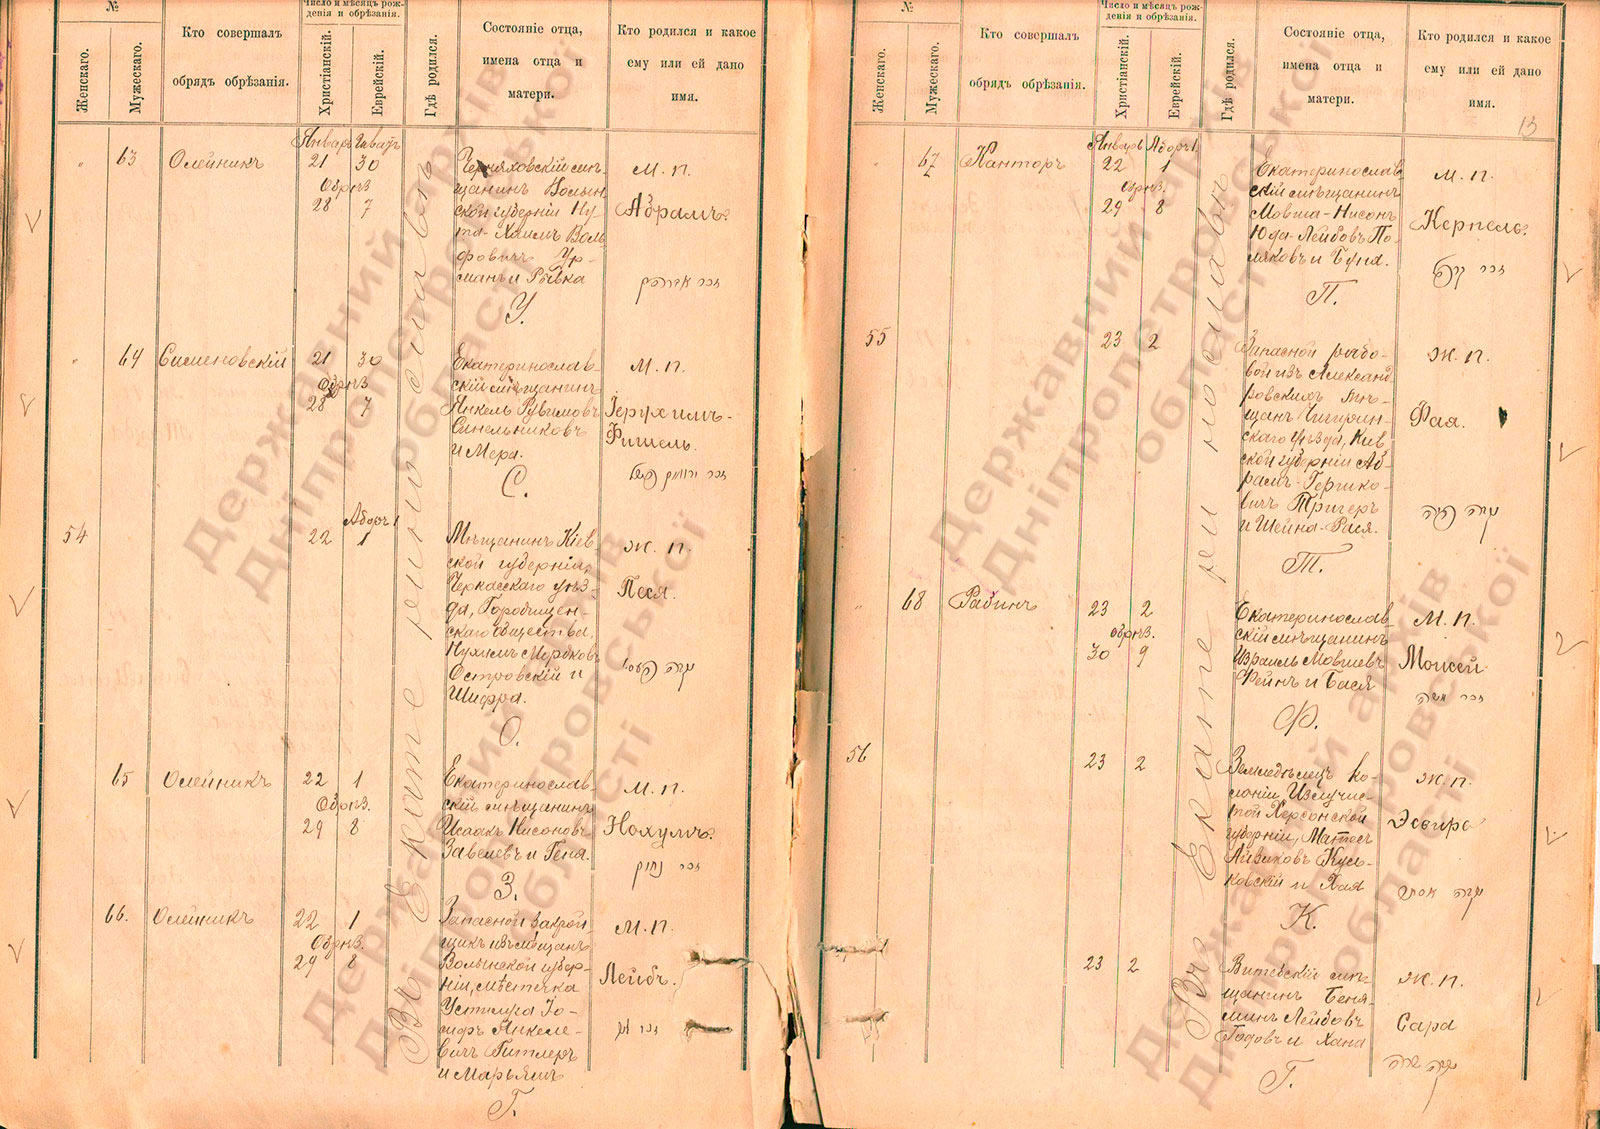 №
Женскаго.
Мужескаго.
Кто совершалъ
обрядъ обрѣзанія.
Число и мѣсяцъ рож-
денія и обрѣзанія.
Христіанскій.
Еврейскій.
Гдѣ родился.
Состояніе отца,
имена отца и
матери.
Кто родился и какое
ему или ей дано
имя.
63 Олейникъ
Январь
21 30
Обрѣз.
28 7
Черняховскій мѣ-
щанинъ Волын
ской губерніи Ну-
та-Хаимъ Воль
фовичъ Ур-
манъ и Рывка
У.
М. П.
Абрамъ.
64 Сименовскій
21 30
Обрѣз
28 7
Екатеринослав-
скій мѣщанинъ
Янкель Рувимовъ
Синельниковъ
и Мера.
С.
М. П.
Іерухимъ-
Фишель.
54
22 1
Мѣщанинъ Кіев-
ской губерніи,
Черкасскаго уѣз-
да, Городищен-
скаго общества,
Нухимъ Мордков
Островскій и
Шифра.
О.
Ж. П.
Песя.
65 Олейникъ
22 1
Обрѣз.
29 8
Екатеринослав-
скій мѣщанинъ
Исаакъ Нисоновъ
Завелевъ и Геня.
З.
М. П.
Нохумъ.
66. Олейникъ
22 1
Обрѣз.
29 8
Запасной закрой
щикъ изъ мѣщанъ
Волынской губер-
ніи, мѣстечка
Устилуга Іо-
сифъ Янкеле-
вичъ Гитлеръ
и Марьямъ
Г.
М. П.
Лейбъ.
Въ Екатеринославѣ
№
Женскаго.
Мужескаго.
Кто совершалъ
обрядъ обрѣзанія.
Число и мѣсяцъ рож-
денія и обрѣзанія.
Христіанскій.
Еврейскій.
Гдѣ родился.
Состояніе отца,
имена отца и
матери.
Кто родился и какое
ему или ей дано
имя.
13
67 Канторъ
Январь
22 1
Обрѣз.
29 8
Екатеринослав-
скій мѣщанинъ
Мовша-Нисонъ
Юда-Лейбовъ По-
ляковъ и Буня.
П.
М. П.
Керпель.
55
23 2
Запасной рядо-
вой изъ Александ
ровскихъ мѣ-
щанъ Чигирин-
скаго уѣзда, Кіев
ской губерніи Аб-
рамъ Гершко-
вичъ Тригеръ
и Шейна-Рася.
Т.
Ж. П.
Фая.
68 Рабинъ
23 2
Обрѣз.
30 9
Екатеринослав-
скій мѣщанинъ
Израиль Мовшевъ
Фейнъ и Бася
Ф.
М. П.
Моисей
56
23 2
Земледѣлецъ ко-
лоніи Излучис-
той Херсонской
губерніи, Матесъ
Айзиковъ Куль-
ковскій и Хая
К.
Ж. П.
Эсѳирь
23 2
Витебскій мѣ-
щанинъ Беня-
минъ Лейбовъ
Годовъ и Хана
Г.
Ж. П.
Сара
Въ Екатеринославѣ
Державний архів
Дніпропетровської
області